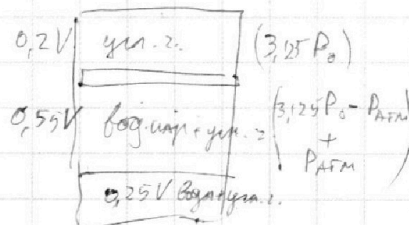 0,2V угл. г. (3,125 P₀)
0,55V вод. пар + угл. г. (3,125 P₀ - Pатм + Pатм)
0,25V вода + угл. г.